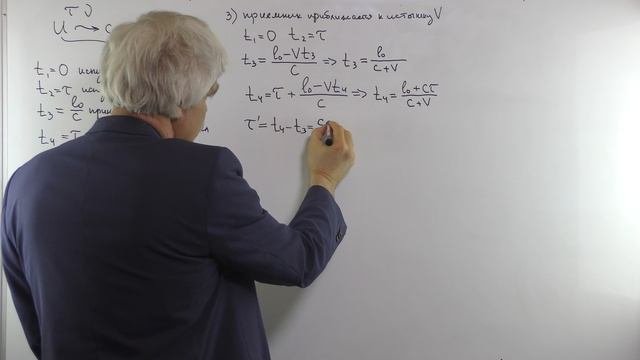 τ ν
И ⇝ с
t₁=0 испу
t₂=τ исп
t₃ = l₀/c при
t₄ = τ
3) приемник приближается к источнику V
t₁=0 t₂=τ
t₃ = (l₀-Vt₃)/c ⇒ t₃ = l₀/(c+V)
t₄ = τ + (l₀-Vt₄)/c ⇒ t₄ = (l₀+cτ)/(c+V)
τ' = t₄-t₃ = c